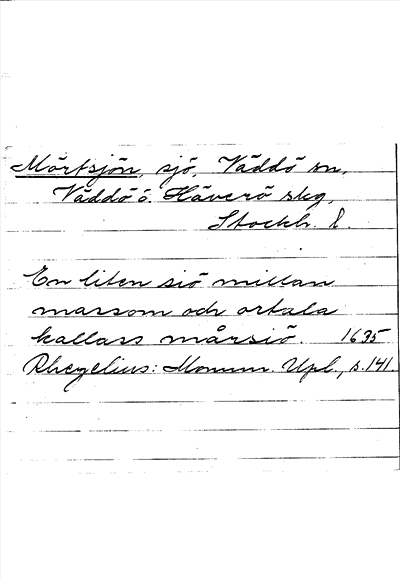 Mörtsjön, sjö, Väddö sn,
Väddö o. Häverö skg,
Stockh. l.
En liten siö mellan
massom och ortala
kallass mårsiö. 1635
Rhezelius: Monum. Upl., s. 141.